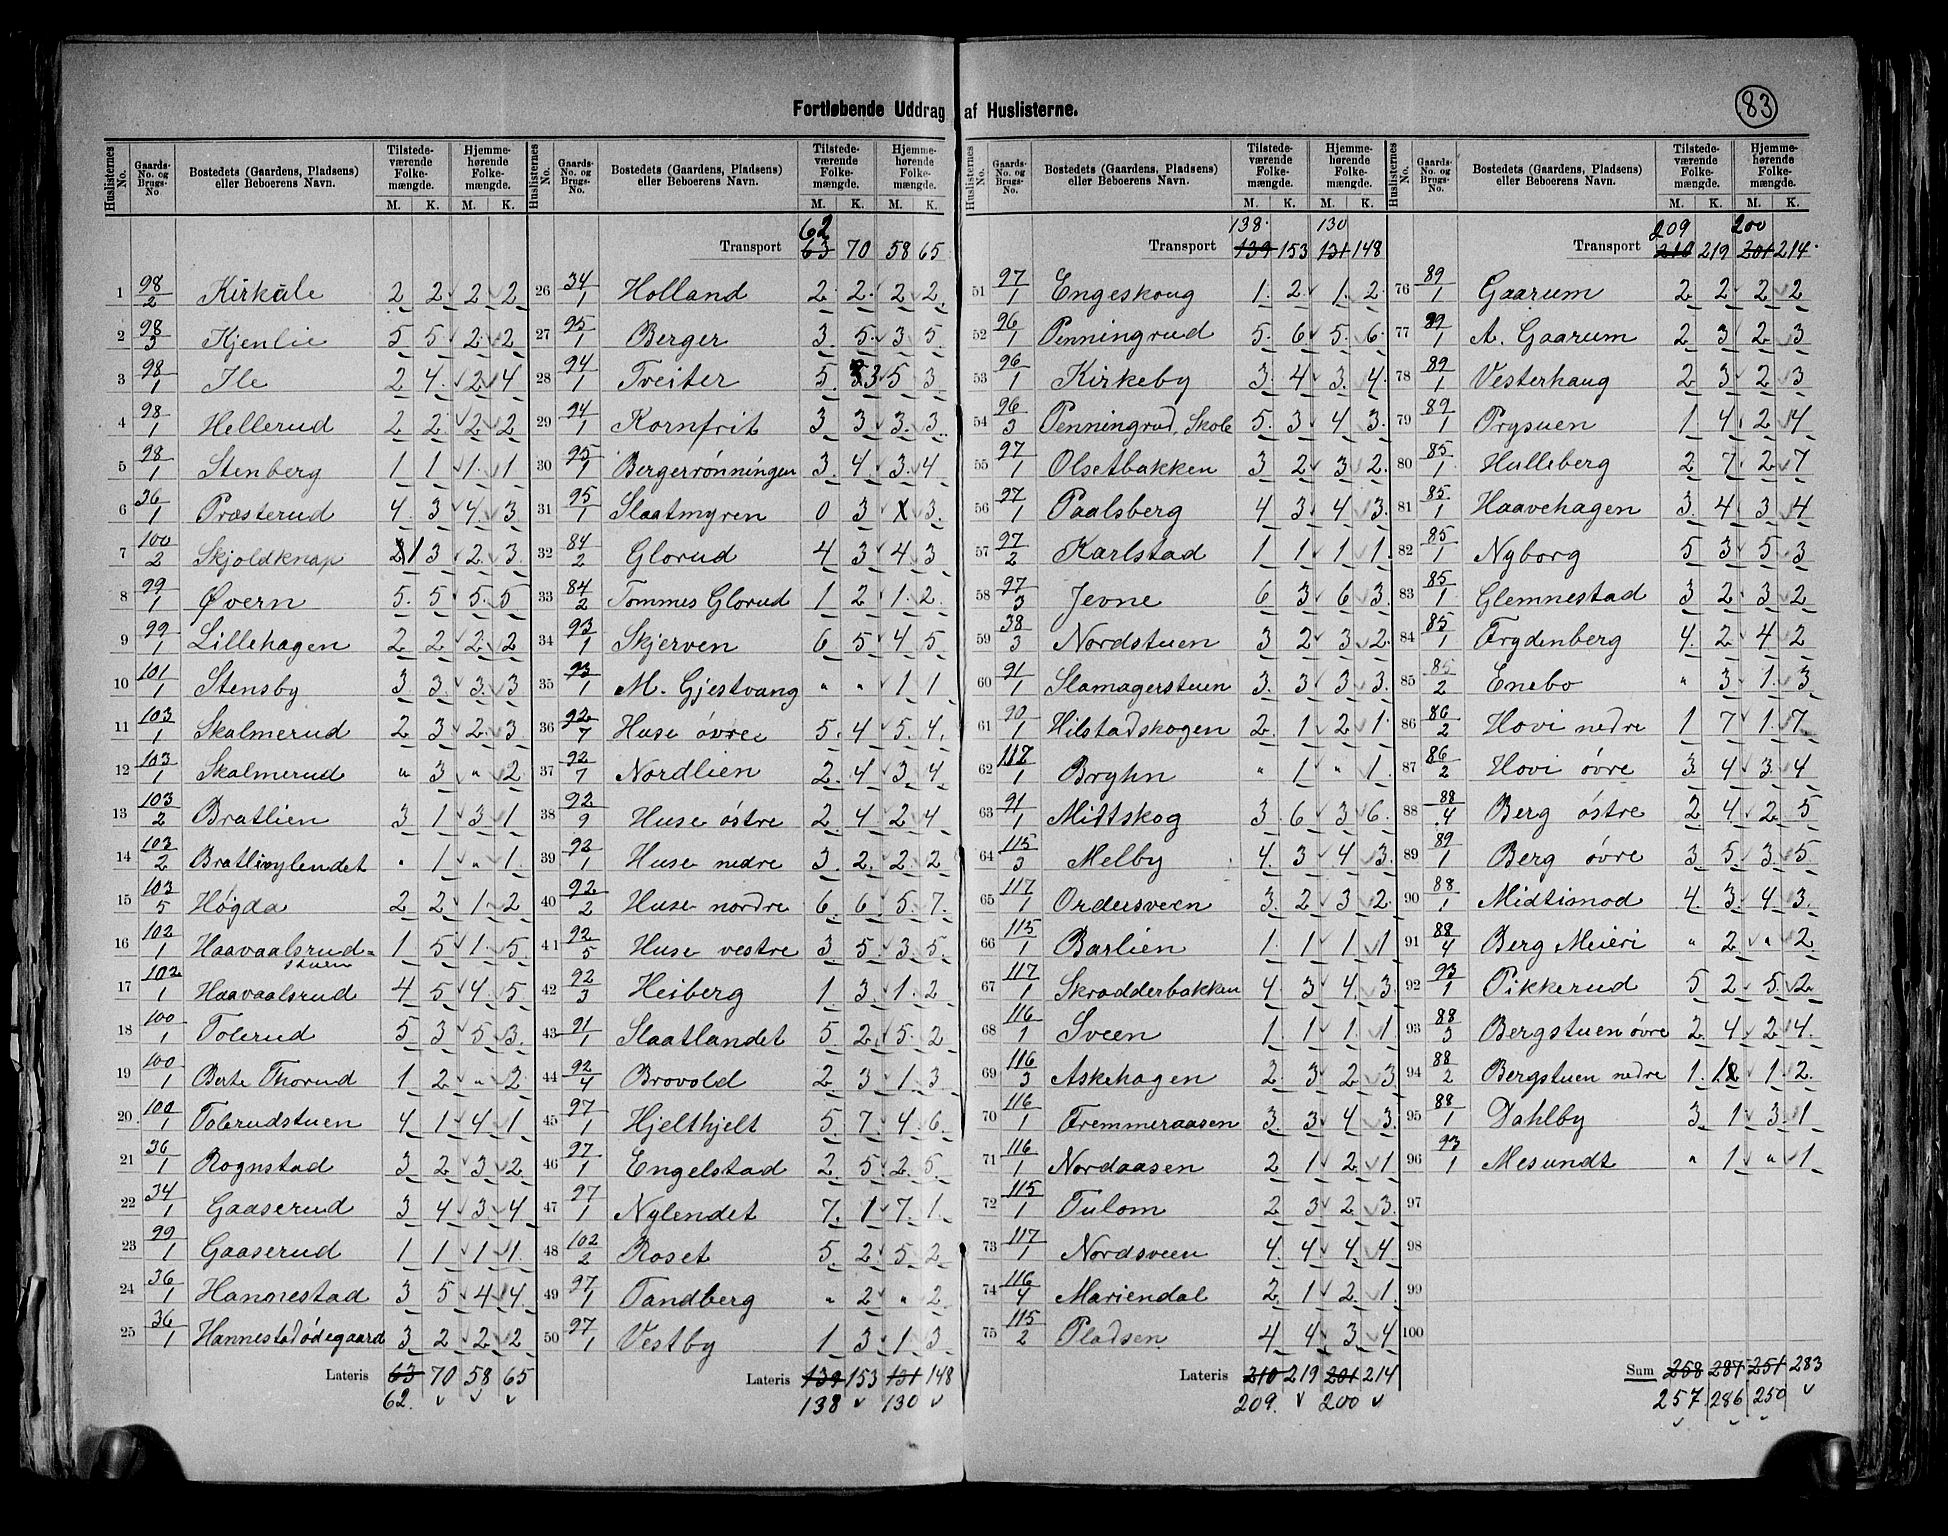 Fortløbende Uddrag af Huslisterne.
83
Huslisternes No. | Gaards-No. og Brugs-No | Bostedets (Gaardens, Pladsens) eller Beboerens Navn. | Tilstedeværende Folkemængde. M. K. | Hjemmehørende Folkemængde. M. K.
1 98/2 Kirkåle 2 2 2 2
2 98/3 Kjenlie 5 5 2 2
3 98/1 Ile 2 4 2 4
4 98/1 Hellerud 2 2 2 2
5 98/1 Stenberg 1 1 1 1
6 36/1 Præsterud 4 3 4 3
7 100/2 Skjoldknap 1 3 2 3
8 99/1 Øvern 5 5 5 5
9 99/1 Lillehagen 2 2 2 2
10 101/1 Stensby 3 3 3 3
11 103/1 Skalmerud 2 3 2 3
12 103/1 Skalmerud " 3 " 2
13 103/2 Bratlien 3 1 3 1
14 103/2 Bratlinylendet " 1 " 1
15 103/5 Høgda 2 2 1 2
16 102/1 Haavaalsrud=stuen 1 5 1 5
17 102/1 Haavaalsrud 4 5 4 5
18 100/1 Tolerud 5 3 5 3
19 100/1 Berte Thorud 1 2 " 2
20 100/1 Tolerudstuen 4 1 4 1
21 36/1 Rognstad 3 2 3 2
22 34/1 Gaaserud 3 4 3 4
23 99/1 Gaaserud 1 1 1 1
24 36/1 Hannestad 3 5 4 4
25 36/1 Hannestadødegaard 3 2 2 2
Lateris 63 70 58 65
62
Huslisternes No. | Gaards-No. og Brugs-No. | Bostedets (Gaardens, Pladsens) eller Beboerens Navn. | Tilstedeværende Folkemængde. M. K. | Hjemmehørende Folkemængde. M. K.
62
Transport 63 70 58 65
26 34/1 Holland 2 2 2 2
27 95/1 Berger 3 5 3 5
28 94/1 Treiter 5 3 5 3
29 94/1 Kornfrit 3 3 3 3
30 95/1 Bergerrønningen 3 4 3 4
31 95/1 Slaatmyren 0 3 X 3
32 84/2 Glorud 4 3 4 3
33 84/2 Tommes Glorud 1 2 1 2
34 93/1 Skjerven 6 5 4 5
35 93/1 M. Gjestvang " " 1 1
36 92/7 Huse øvre 5 4 5 4
37 92/7 Nordlien 2 4 3 4
38 92/9 Huse østre 2 4 2 4
39 92/1 Huse nedre 3 2 2 2
40 92/2 Huse nordre 6 6 5 7
41 92/5 Huse vestre 3 5 3 5
42 92/3 Heiberg 1 3 1 2
43 91/1 Slaatlandet 5 2 5 2
44 92/4 Brovold 2 3 1 3
45 97/1 Hjelthjelt 5 7 4 6
46 97/1 Engelstad 2 5 2 5
47 97/1 Nylendet 7 1 7 1
48 102/2 Roset 5 2 5 2
49 97/1 Tandberg " 2 " 2
50 97/1 Vestby 1 3 1 3
Lateris 139 153 131 148
138 130
Huslisternes No. | Gaards-No. og Brugs-No. | Bostedets (Gaardens, Pladsens) eller Beboerens Navn. | Tilstedeværende Folkemængde. M. K. | Hjemmehørende Folkemængde. M. K.
138 130
Transport 139 153 131 148
51 97/1 Engeskoug 1 2 1 2
52 96/1 Penningrud 5 6 5 6
53 96/1 Kirkeby 3 4 3 4
54 96/3 Penningrud, Skole 5 3 4 3
55 97/1 Olsetbakken 3 2 3 2
56 97/1 Paalsberg 4 3 4 3
57 97/2 Karlstad 1 1 1 1
58 97/3 Jevne 6 3 6 3
59 38/3 Nordstuen 3 2 3 2
60 91/1 Slamagerstuen 3 3 3 3
61 90/1 Hilstadskogen 2 1 2 1
62 112/1 Bryhn " 1 " 1
63 91/1 Midtskog 3 6 3 6
64 115/3 Melby 4 3 4 3
65 117/1 Ordersveen 3 2 3 2
66 115/1 Barlien 1 1 1 1
67 117/1 Skrædderbakken 4 3 4 3
68 116/1 Sveen 1 1 1 1
69 116/3 Askehagen 2 3 2 3
70 116/1 Fremmeraasen 3 3 4 3
71 116/1 Nordaasen 2 1 2 1
72 115/1 Tulom 2 3 2 3
73 117/1 Nordsveen 4 4 4 4
74 116/4 Mariendal 2 1 2 1
75 115/2 Pladsen 4 4 3 4
Lateris 210 219 201 214
209 200
Huslisternes No. | Gaards-No. og Brugs-No. | Bostedets (Gaardens, Pladsens) eller Beboerens Navn. | Tilstedeværende Folkemængde. M. K. | Hjemmehørende Folkemængde. M. K.
209 200
Transport 210 219 201 214
76 89/1 Gaarum 2 2 2 2
77 89/1 A. Gaarum 2 3 2 3
78 89/1 Vesterhaug 2 3 2 3
79 89/1 Prysuen 1 4 2 4
80 85/1 Hulleberg 2 7 2 7
81 85/1 Haavehagen 3 4 3 4
82 85/1 Nyborg 5 3 5 3
83 85/1 Glemnestad 3 2 3 2
84 85/1 Frydenberg 4 2 4 2
85 85/2 Enebo " 3 1 3
86 86/2 Hovi nedre 1 7 1 7
87 86/2 Hovi øvre 3 4 3 4
88 88/4 Berg østre 2 4 2 5
89 89/1 Berg øvre 3 5 3 5
90 88/1 Midtimod 4 3 4 3
91 88/4 Berg Meieri " 2 " 2
92 93/1 Pikkerud 5 2 5 2
93 88/3 Bergstuen øvre 2 4 2 4
94 88/2 Bergstuen nedre 1 1 1 2
95 88/1 Dahlby 3 1 3 1
96 93/1 Mesundt " 1 " 1
97
98
99
100
Sum 258 287 251 283
257 286 250